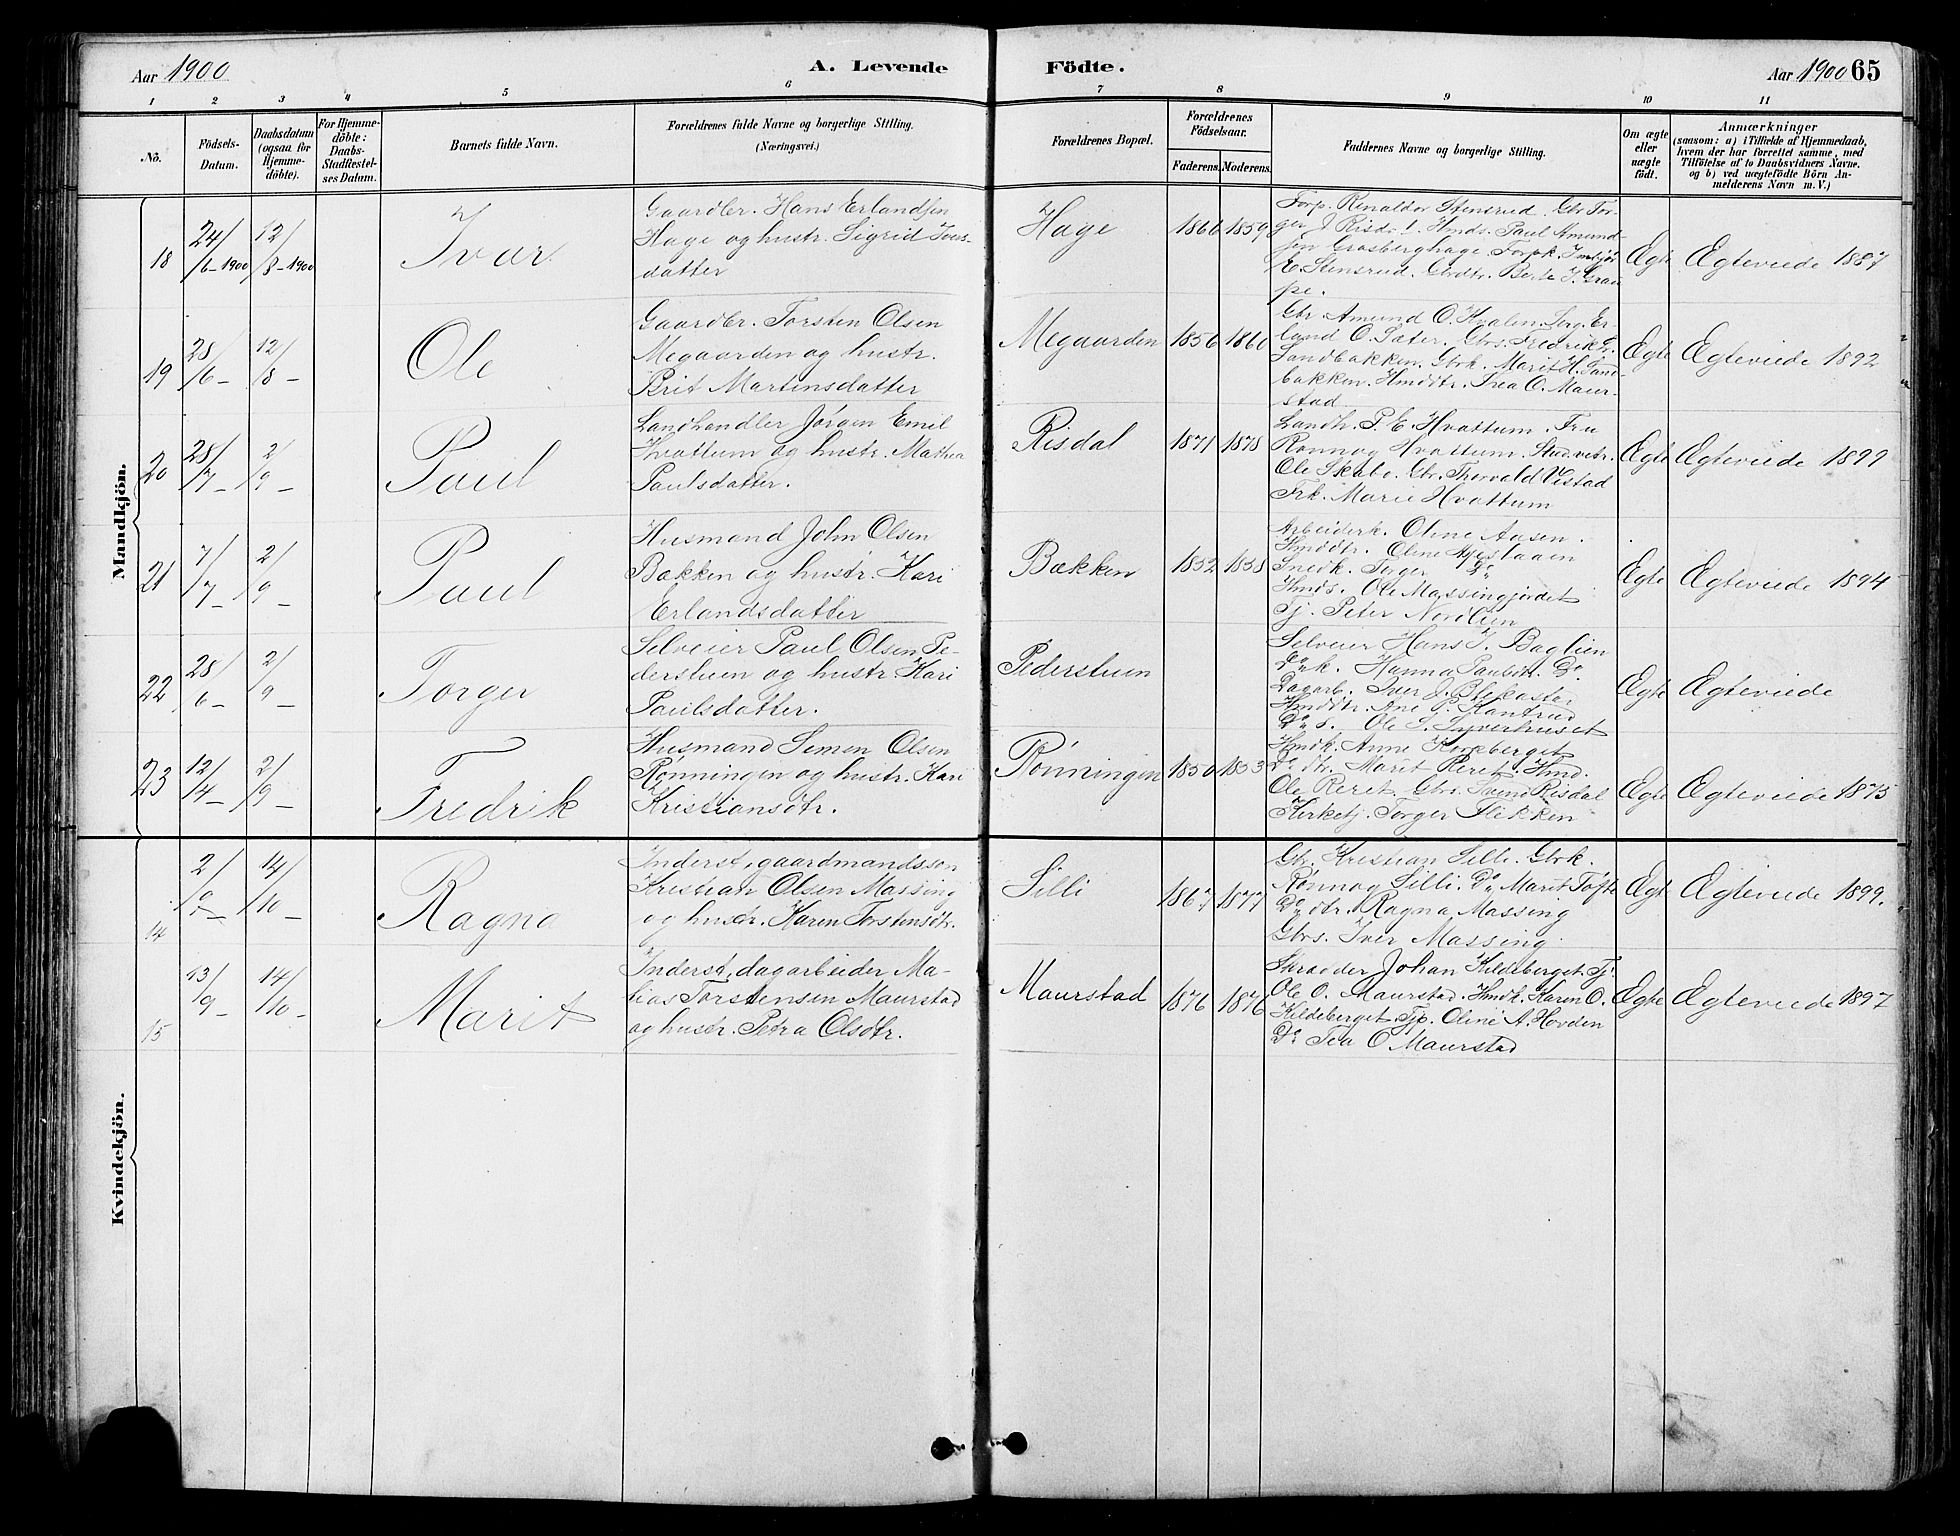 Aar 1900
A. Levende Födte.
Aar 1900 65
1 2 3 4 5 6 7 8 9 10 11
No.
Födsels-Datum.
Daabsdatum (ogsaa for Hjemme-döbte).
For Hjemme-döbte: Daabs-Stadfæstel-ses Datum.
Barnets fulde Navn.
Forældrenes fulde Navne og borgerlige Stilling.
(Næringsvei.)
Forældrenes Bopæl.
Forældrenes Födselsaar.
Faderens. Moderens.
Faddernes Navne og borgerlige Stilling.
Om ægte eller uægte födt.
Anmærkninger
(saasom: a) i Tilfælde af Hjemmedaab,
hvem der har forrettet samme, med
Tilföielse af to Daabsvidners Navne.
og b) ved uægtefödte Börn An-
melderens Navn m. V.)
Mandkjön.
18 24/6-1900 12/8-1900 Ivar
Gaardbr. Hans Erlandsen
Hage og hustr. Sigrid Ivers-
datter
Hage 1860 1859
Forp. Rinaldor Stensrud. Gbr Tor-
ger J Risd. Hmds. Paul Amund-
sen Graberghage. Forpk.
E. Stensrud. Gbrdtr. Berte J.
Egte Egteviede 1887
19 28/6- 12/8- Ole
Gaardbr. Torsten Olsen
Megaarden og hustr.
Brit Martinsdatter
Megaarden 1856 1860
Gbr Amund O. Kvalen. Er-
land O. Sater. Gbrs. Fredrik
Sandbakken. Gbrk. Marit H. Sand-
bakken. Hmddtr. Thea O. Maur-
stad
Egte Egteviede 1892
20 28/7- 2/9- Paul
Landhandler Jörgen Emil
Hvattum og hustr. Mathea
Paulsdatter.
Risdal 1871 1878
Landh. P. E. Hvattum. Fru
Rönnog Hvattum. Stud.
Ole Skabe. Gbr. Thorvald Vistad
Frk. Marie Hvattum
Egte Egteviede 1899
21 7/7- 2/9- Paul
Husmand John Olsen
Bakken og hustr. Kari
Erlandsdatter
Bakken 1852 1858
Arbeiderk. Oline Aasen.
Hmddtr. Oline
Snedk. Torger Do
Hmds. Ole Massingjordet
Tj. Peter Nordlien
Egte Egteviede 1894
22 28/6- 2/9- Torger
Selveier Paul Olsen Pe-
derstuen og hustr Kari
Paulsdatter.
Pederstuen
Selveier Hans J. Baglien
Do k. Hanna Paulsdtr. Do.
Dagarb. Iver J.
Hmddtr. Ane P. Kantrud
Do s. Ole S. Syverhuset
Egte Egteviede
23 12/4- 2/9- Fredrik
Husmand Simen Olsen
Rönningen og hustr. Kari
Kristiansdtr.
Rönningen 1850 1853
Hmdk. Anne Korsberget
Do dtr. Marit Reret. Hmd.
Ole Reret. Gbrs. Svend Risdal
Kirketj. Torger Flekken
Egte Egteviede 1875
Kvindekjön.
14 14/10- Ragna
Inderst, gaardmandsson
Kristian Olsen Massing
og hustr. Karen Torstensdtr.
Silli 1867 1877
Gbr. Kristian Silli. Gbrk.
Rönnog Silli. Do Marit Töfte
Do dtr. Ragna Massing
Gbrs. Iver Massing.
Egte Egteviede 1899.
15 13/9- 14/10- Marit
Inderst, dagarbeider Ma-
tias Torstensen Maurstad
og hustr. Petra Olsdtr.
Maurstad 1876 1876
Skrædder Johan Kildeberget. Tj.
Ole O. Maurstad. Hmdk. Karen O.
Kildeberget. Tjp. Oline A. Hovden
Do Tea O Maurstad
Egte Egteviede 1897